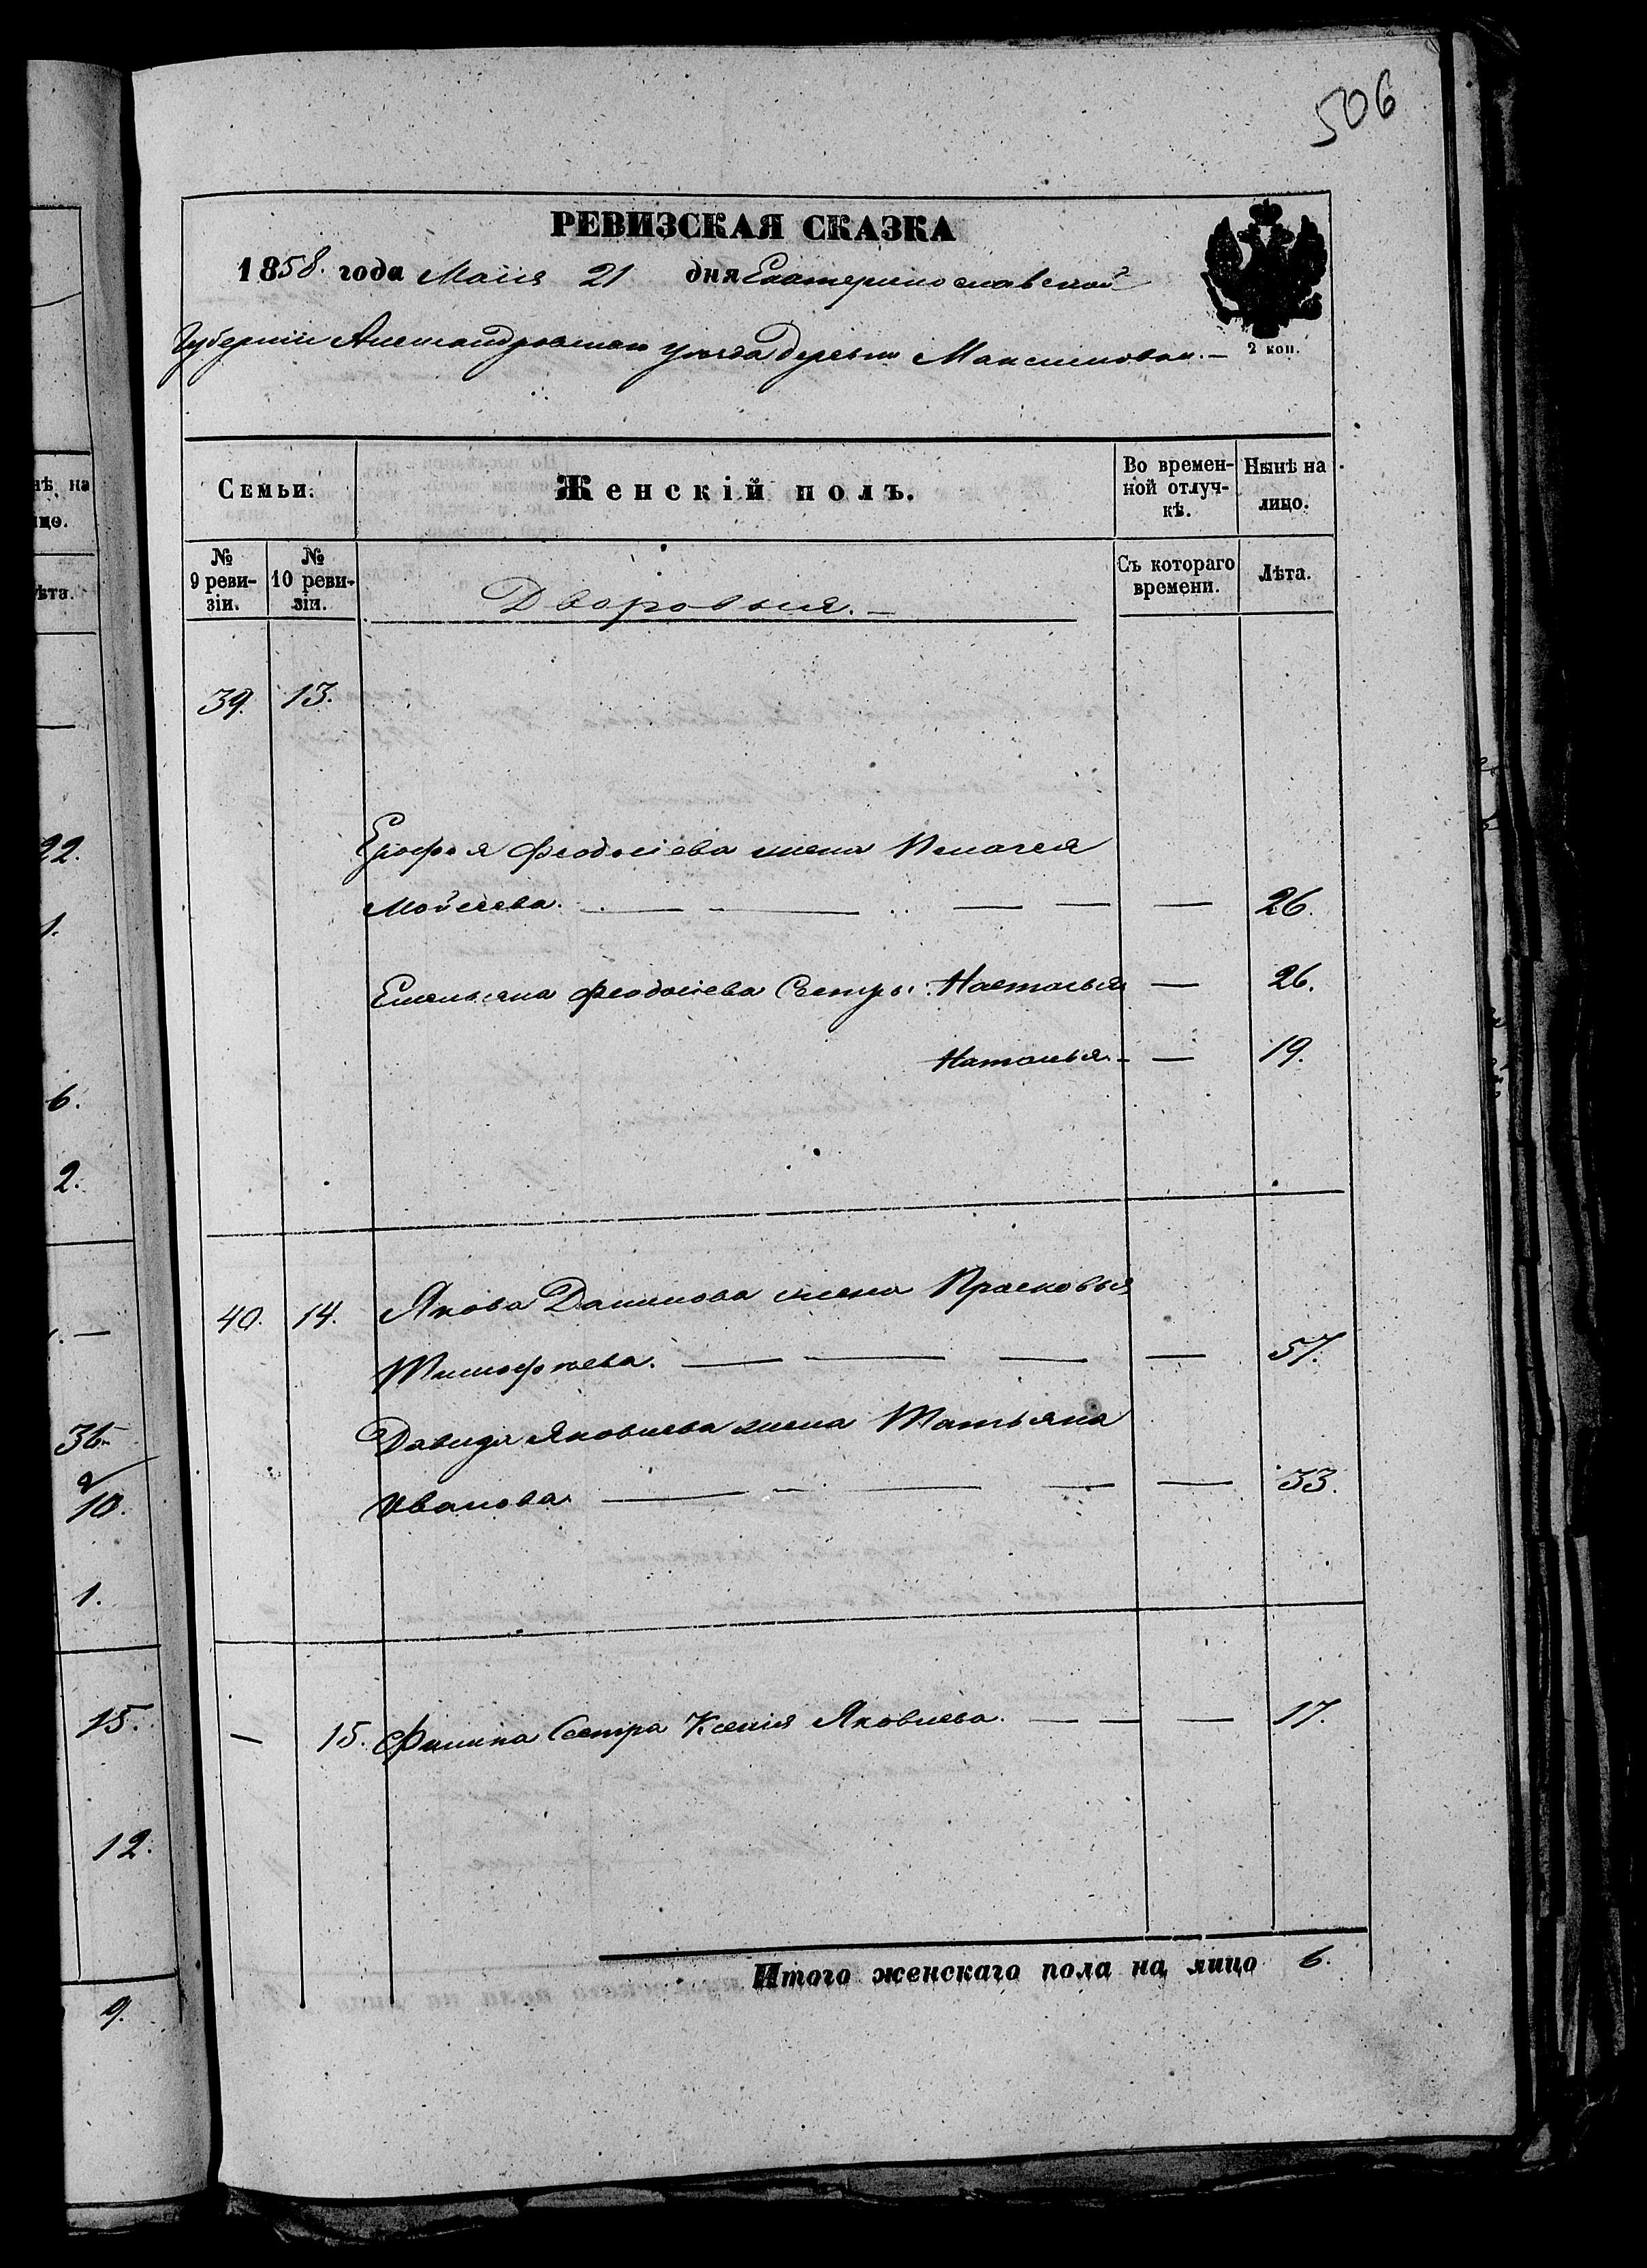 506
РЕВИЗСКАЯ СКАЗКА
1858. года Маія 21 дня Екатеринославской
Губерніи Александровскаго уѣзда деревни Максимовки. —
2 коп.
Семьи.
Женскій полъ.
Во времен-
ной отлуч-
кѣ.
Нынѣ на
лицо.
№
9 реви-
зіи.
№
10 реви-
зіи.
Дворовыя. —
Съ котораго
времени.
Лѣта.
39. 13.
Ерофея Феодосіева жена Пелагея
Мойсеева. — — — — — 26.
Емельяна Феодосіева Сестры: Настасья — 26.
Наталья. — — 19.
40. 14. Якова Данилова жена Прасковья
Тимофѣева. — — — — 57.
Давида Яковлева жена Татьяна
Иванова. — — — — — 33.
— 15. Филипа Сестра Ксенія Яковлева. — — — 17.
Итого женскаго пола на лицо 6.
нѣ на
ицо.
ѣта.
22.
1.
6.
2.
1. —
10.
1.
15.
12.
9.